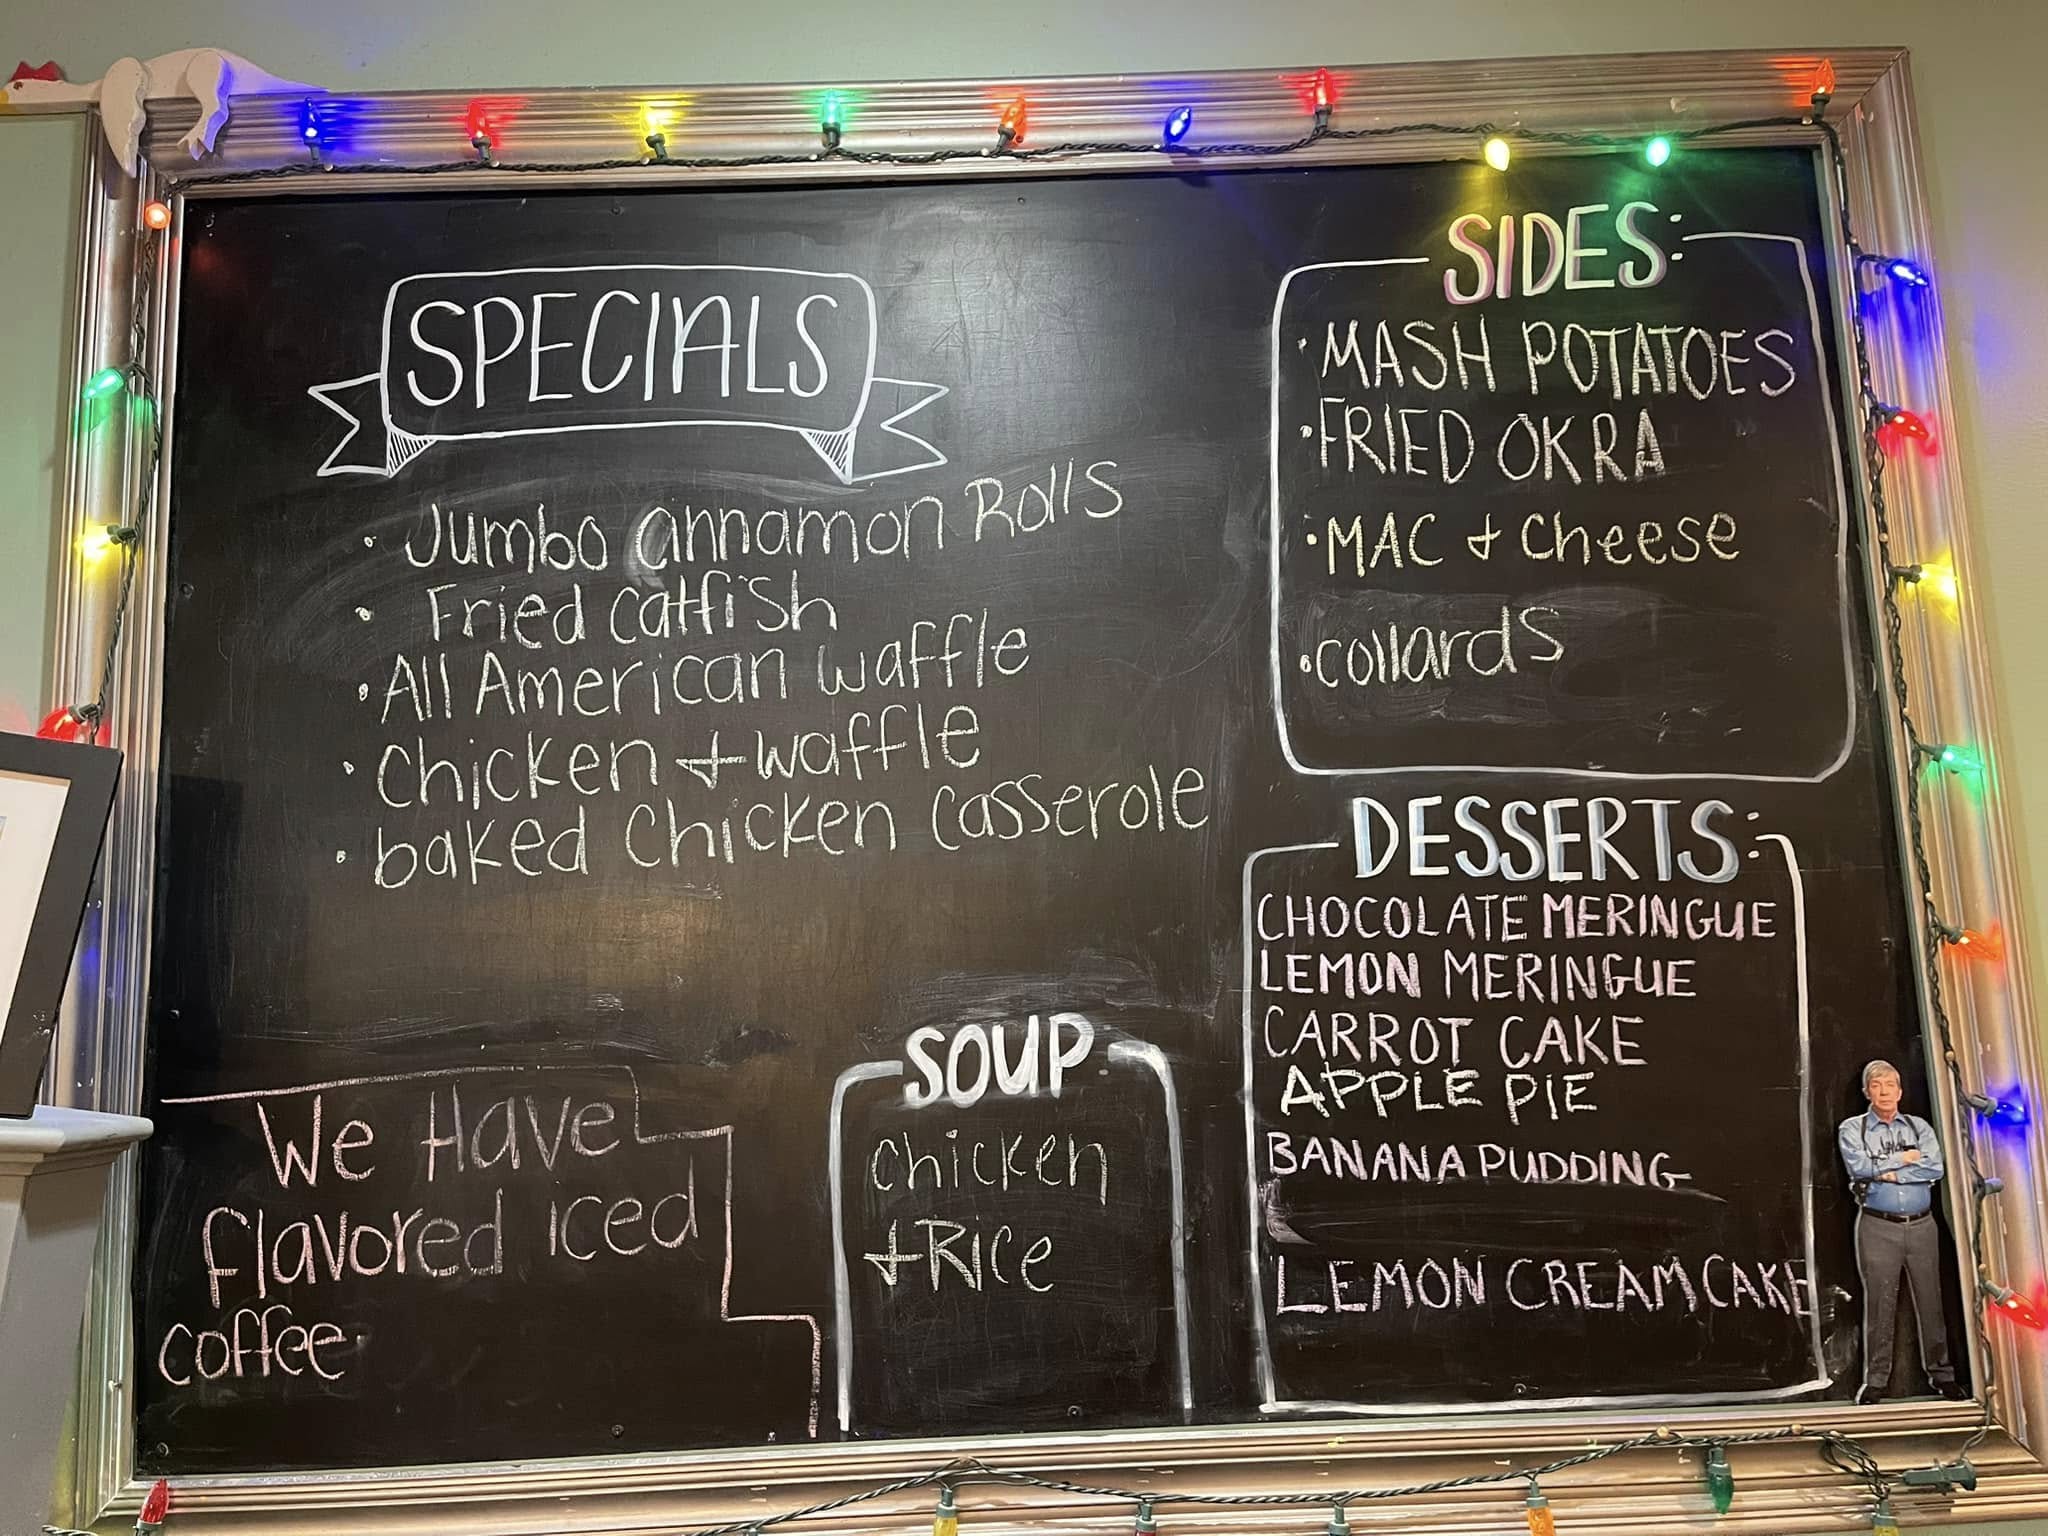 SPECIALS
· Jumbo Cinnamon Rolls
· Fried Catfish
· All American waffle
· Chicken + waffle
· baked Chicken Casserole
SIDES:
· MASH POTATOES
· FRIED OKRA
· MAC + Cheese
· Collards
DESSERTS:
CHOCOLATE MERINGUE
LEMON MERINGUE
CARROT CAKE
APPLE PIE
BANANA PUDDING
LEMON CREAM CAKE
SOUP
Chicken
+ Rice
We Have
flavored iced
coffee